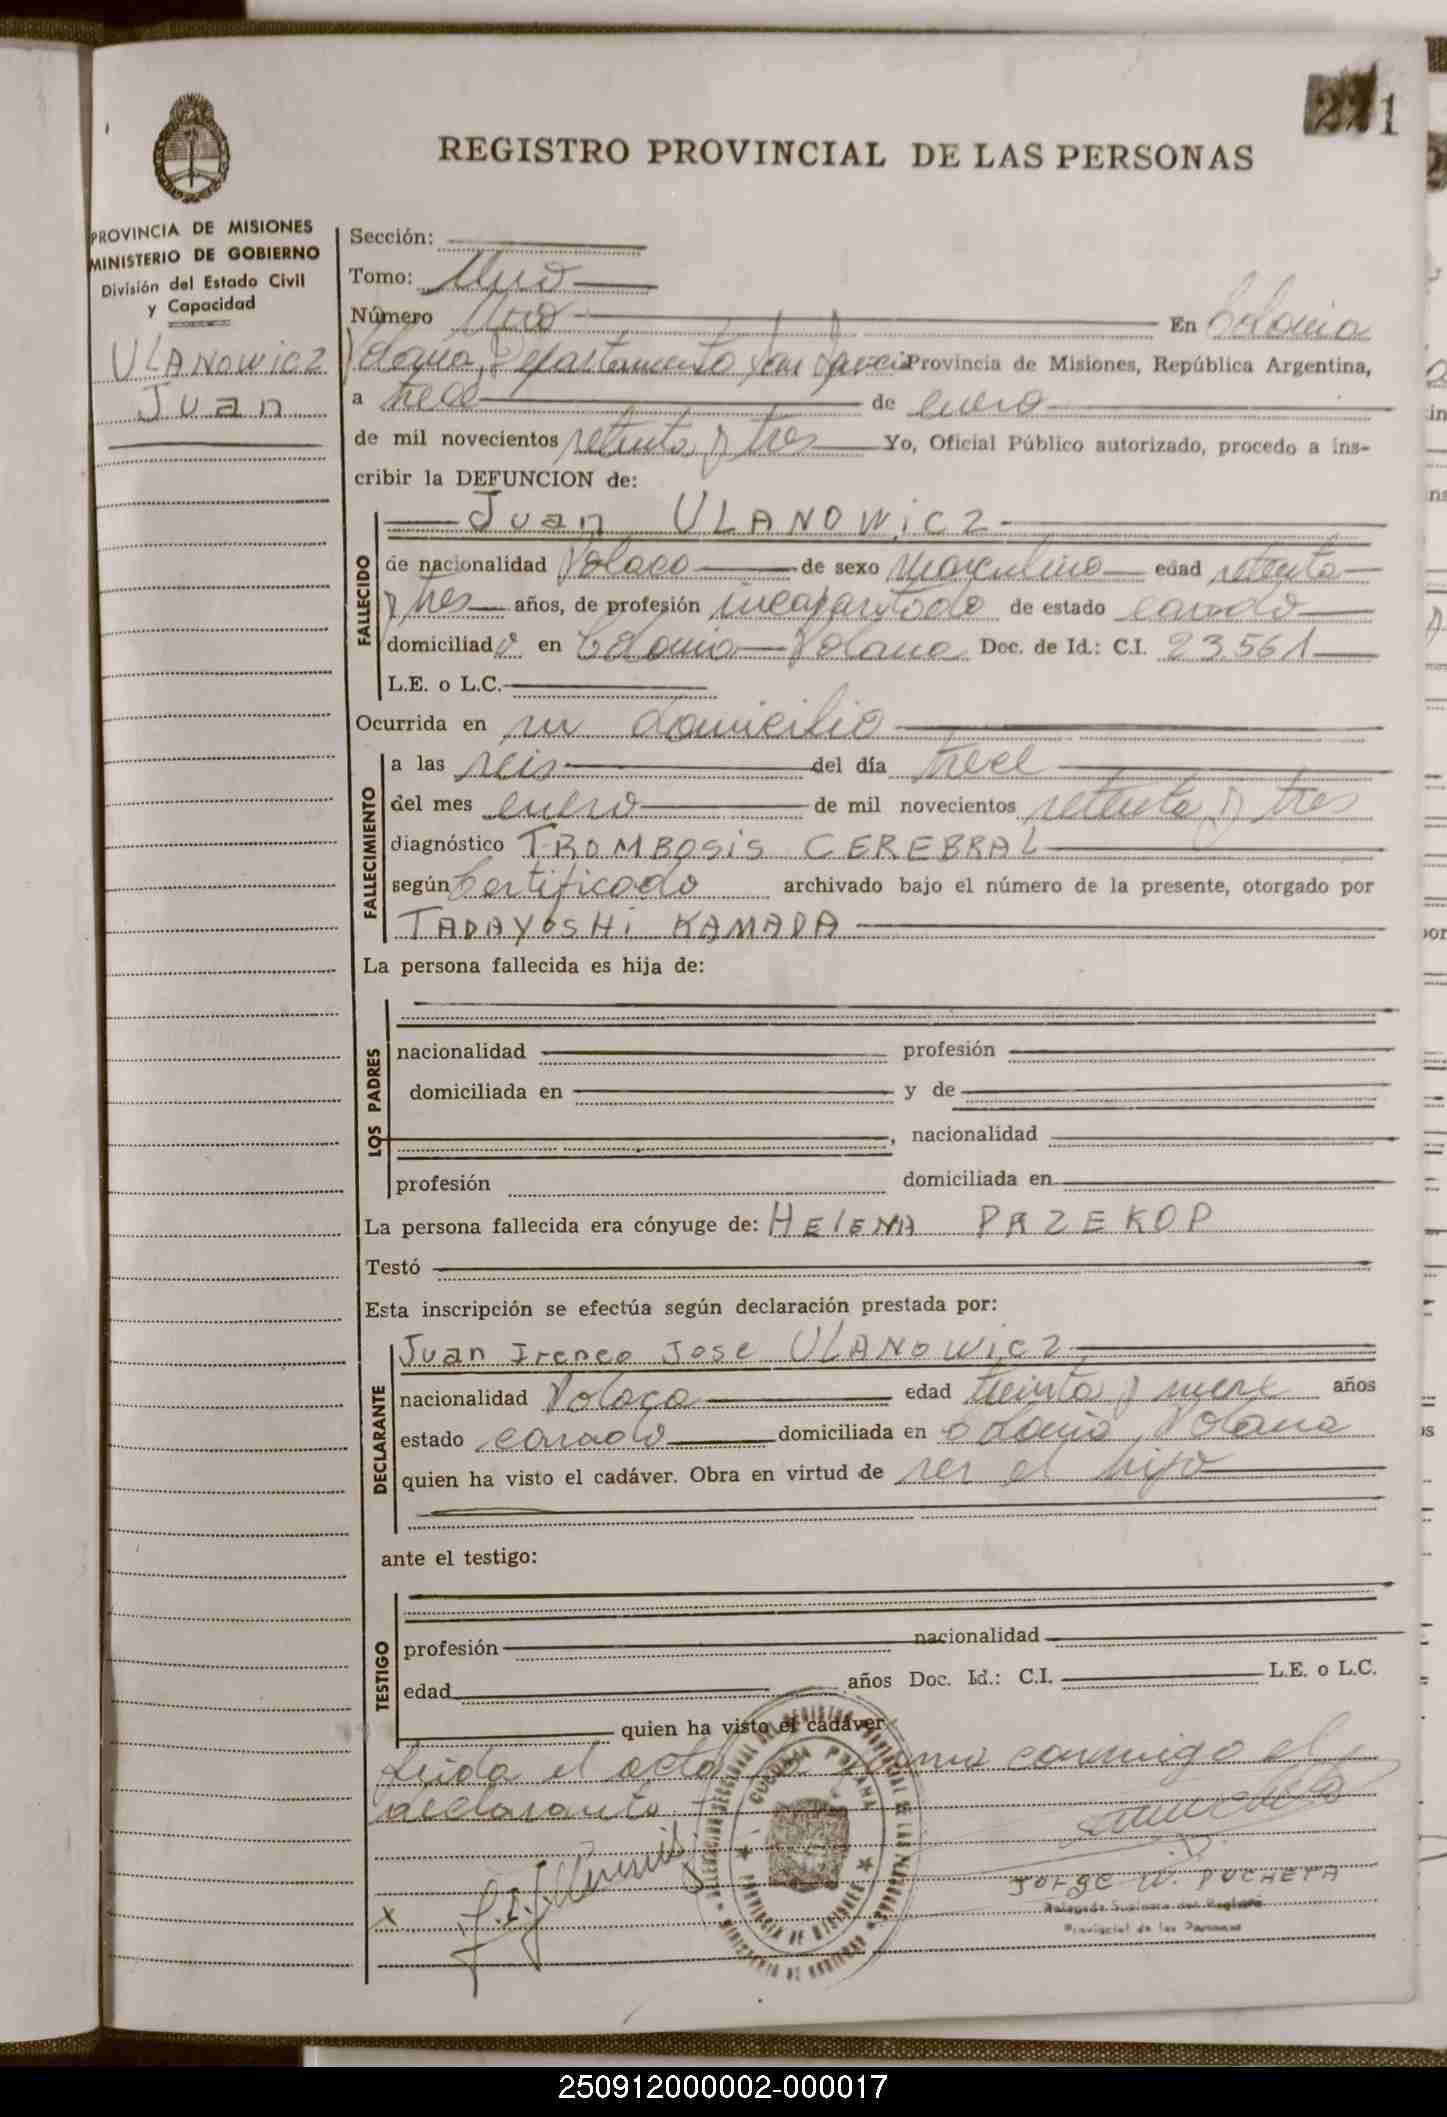 221
REGISTRO PROVINCIAL DE LAS PERSONAS
PROVINCIA DE MISIONES
MINISTERIO DE GOBIERNO
División del Estado Civil
y Capacidad
ULANOWICZ
Juan
Sección:
Tomo: Uno
Número Uno En Colonia
Polana, Departamento San Javier Provincia de Misiones, República Argentina,
a trece de enero
de mil novecientos setenta y tres Yo, Oficial Público autorizado, procedo a ins-
cribir la DEFUNCION de:
FALLECIDO
Juan ULANOWICZ
de nacionalidad Polaco de sexo masculino edad setenta
y tres años, de profesión incapacitado de estado casado
domiciliado en Colonia Polana Doc. de Id.: C.I. 23.561
L.E. o L.C.
Ocurrida en su domicilio
FALLECIMIENTO
a las seis del día trece
del mes enero de mil novecientos setenta y tres
diagnóstico TROMBOSIS CEREBRAL
según Certificado archivado bajo el número de la presente, otorgado por
TADAYOSHI KAMADA
La persona fallecida es hija de:
LOS PADRES
nacionalidad profesión
domiciliada en y de
, nacionalidad
profesión domiciliada en
La persona fallecida era cónyuge de: HELENA PRZEKOP
Testó
Esta inscripción se efectúa según declaración prestada por:
DECLARANTE
Juan Ireneo Jose ULANOWICZ
nacionalidad Polaca edad treinta y nueve años
estado casado domiciliada en Colonia Polana
quien ha visto el cadáver. Obra en virtud de ser el hijo
ante el testigo:
TESTIGO
profesión nacionalidad
edad años Doc. Id.: C.I. L.E. o L.C.
quien ha visto el cadáver
Leida el acta la firma conmigo el
declarante.
DELEGACION SECCIONAL DEL REGISTRO PROVINCIAL DE LAS PERSONAS
COLONIA POLANA
PROVINCIA DE MISIONES
MINISTERIO DE GOBIERNO
x
JORGE W. DUCHETA
Provincial de las Personas
250912000002-000017